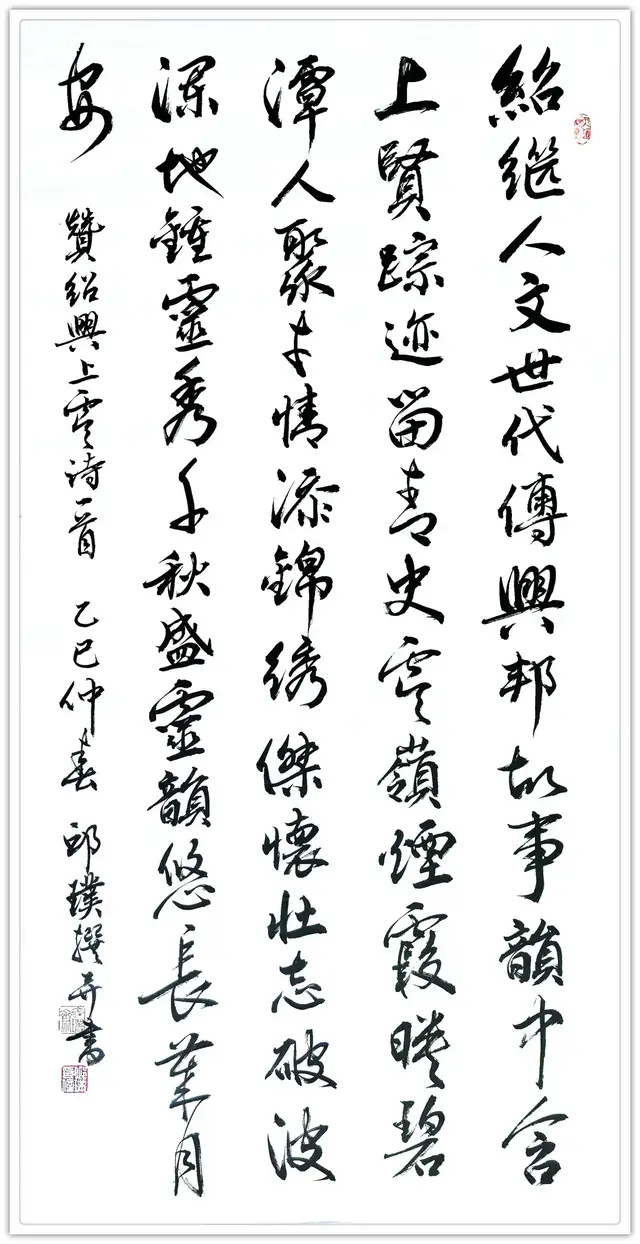 紹继人文世代傳興邦故事韻中含
上賢踪迹留青史虞嶺煙霞映碧
潭人聚才情添錦绣傑懷壮志破波
瀾地鍾靈秀千秋盛靈韻悠長歲月
安 贊绍興上虞诗一首 乙巳仲春 邱璞撰并書